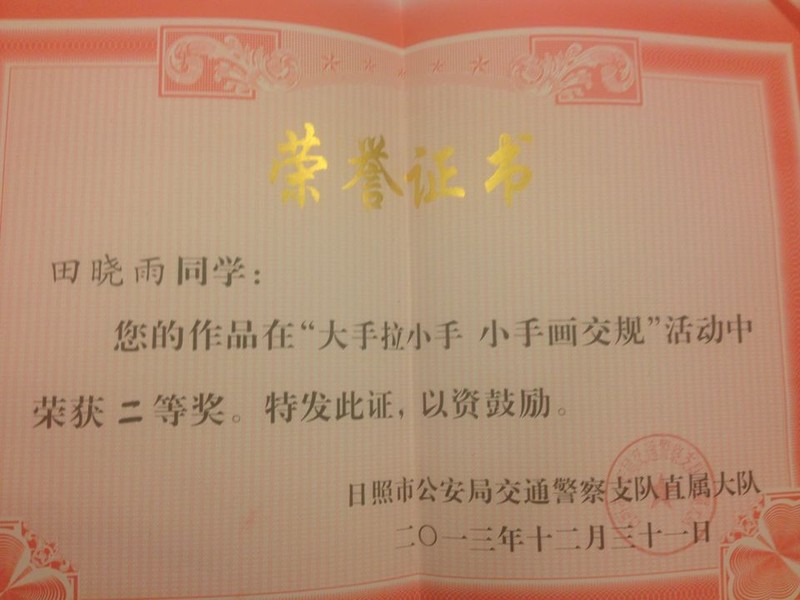 荣誉证书
田晓雨同学：
您的作品在“大手拉小手 小手画交规”活动中
荣获二等奖。特发此证，以资鼓励。
日照市公安局交通警察支队直属大队
二〇一三年十二月三十一日